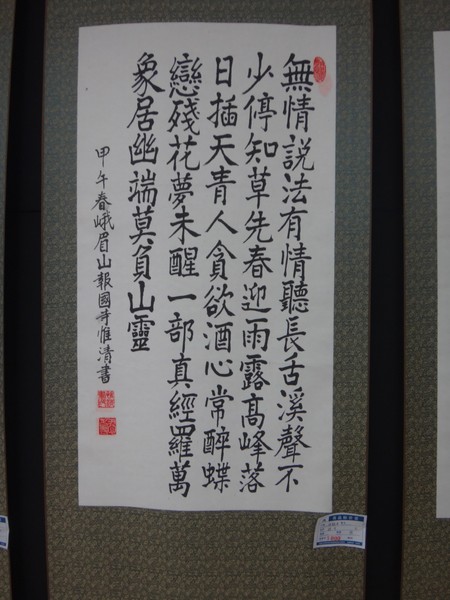 無情説法有情聽長舌溪聲不
少停知草先春迎雨露高峰落
日插天青人貪欲酒心常醉蝶
戀殘花夢未醒一部真經羅萬
象居幽端莫負山靈
甲午春峨眉山報國寺惟清書